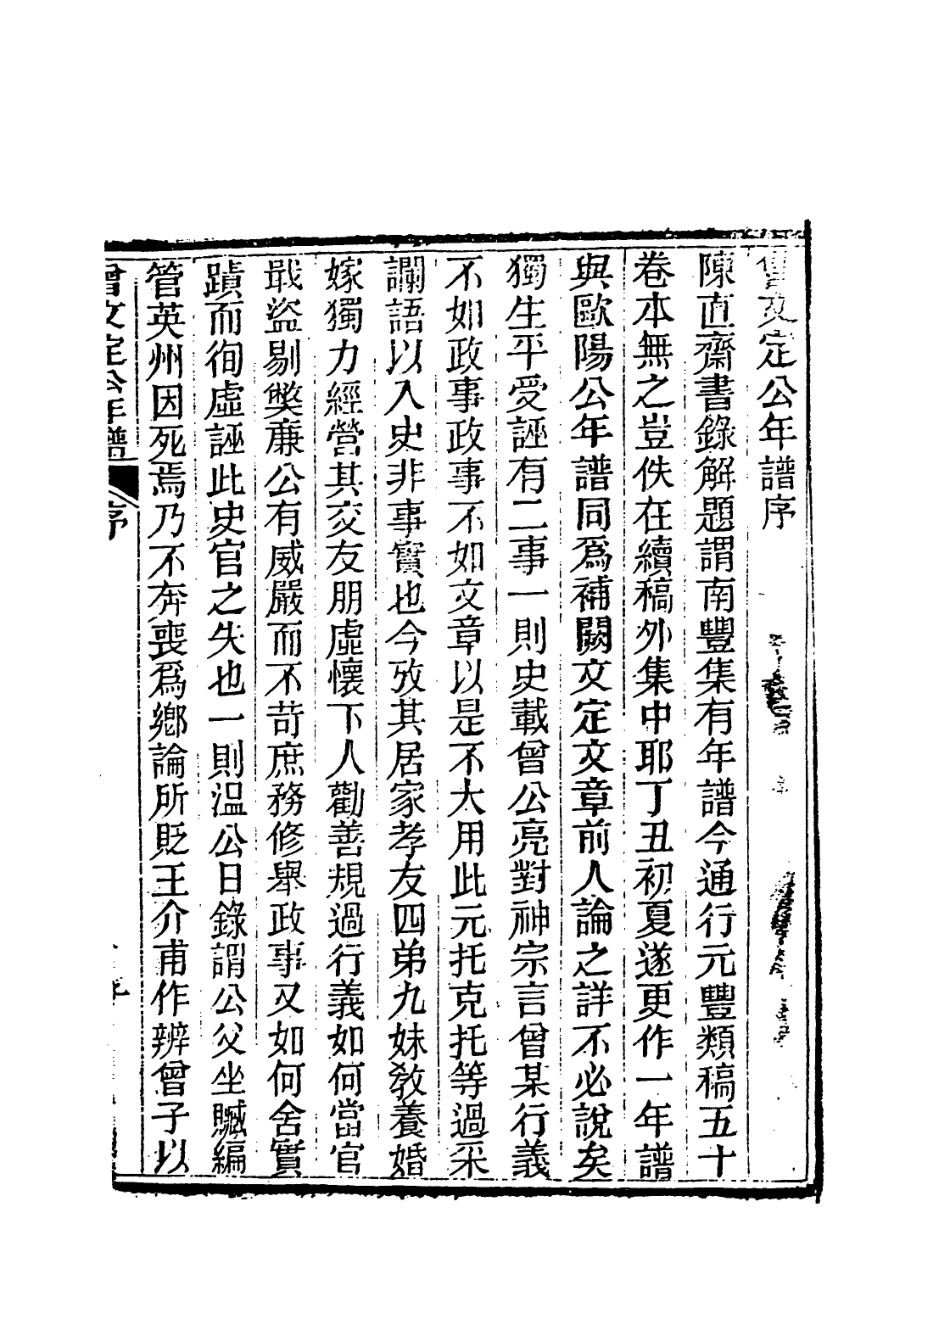 曾文定公年譜序
陳直齋書錄解題謂南豐集有年譜今通行元豐類稿五十
卷本無之豈佚在續稿外集中耶丁丑初夏遂更作一年譜
與歐陽公年譜同爲補闕文定文章前人論之詳不必說矣
獨生平受誣有二事一則史載曾公亮對神宗言曾某行義
不如政事政事不如文章以是不大用此元托克托等過采
讕語以入史非事實也今攷其居家孝友四弟九妹敎養婚
嫁獨力經營其交友朋虛懷下人勸善規過行義如何當官
戢盜剔獘亷公有威嚴而不苛庶務修舉政事又如何舍實
蹟而徇虛誣此史官之失也一則温公日錄謂公父坐贓編
管英州因死焉乃不奔喪爲鄕論所貶王介甫作辨曾子以
曾文定公年譜
序